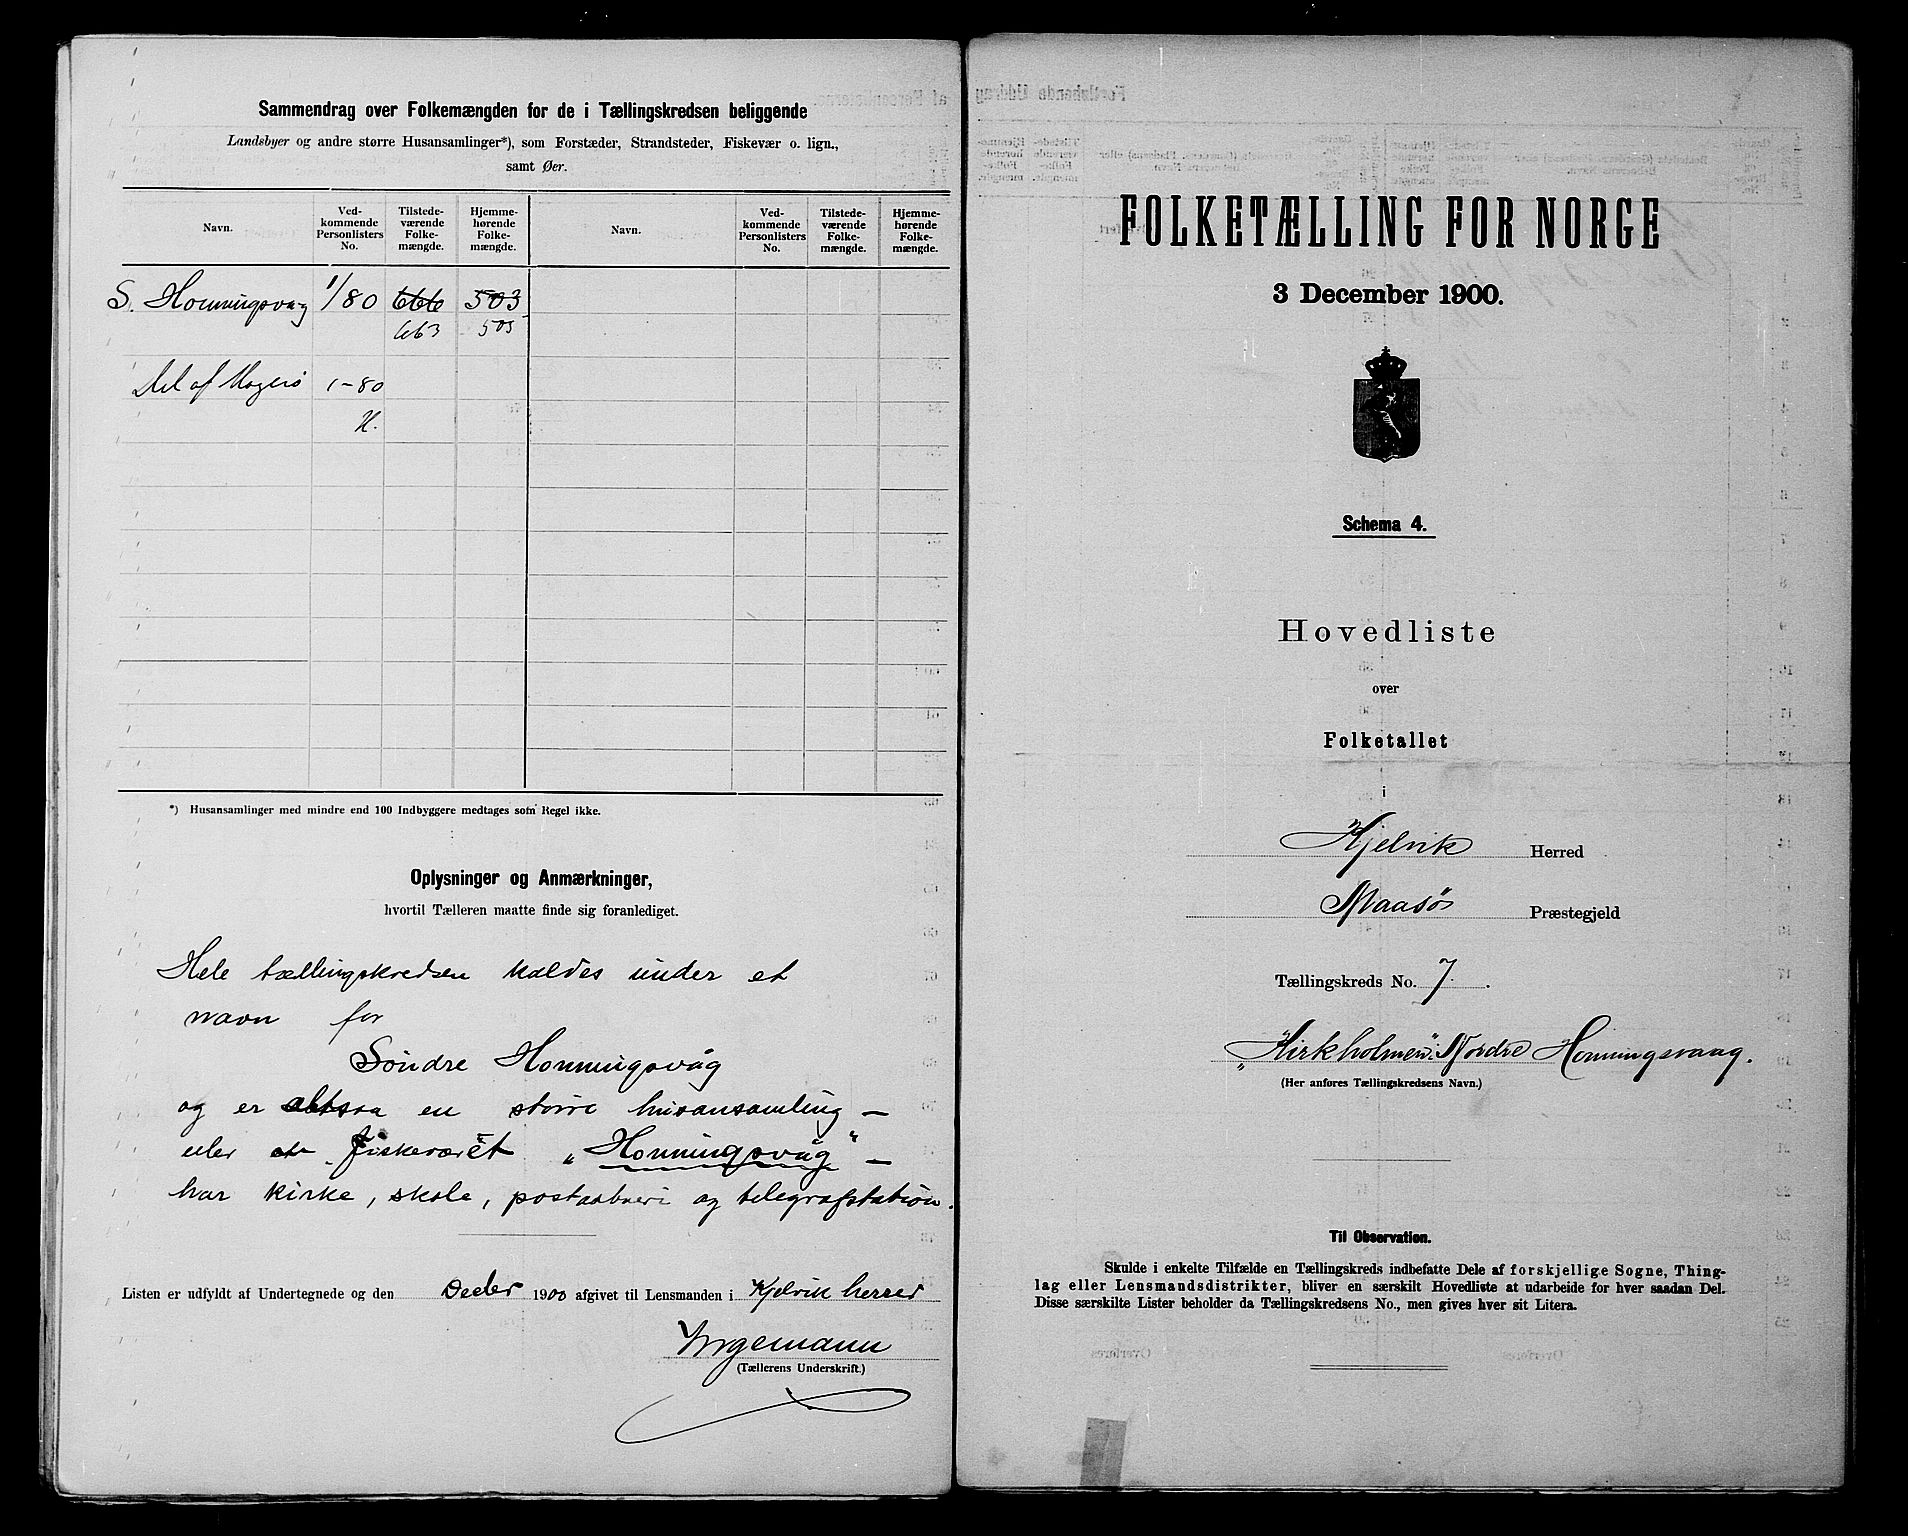 Sammendrag over Folkemængden for de i Tællingskredsen beliggende
Landsbyer og andre større Husansamlinger*), som Forstæder, Strandsteder, Fiskevær o. lign.,
samt Øer.
Navn. Ved-kommende Personlisters No. Tilstede-værende Folke-mængde. Hjemme-hørende Folke-mængde. Navn. Ved-kommende Personlisters No. Tilstede-værende Folke-mængde. Hjemme-hørende Folke-mængde.
S. Honningsvaag 1/80 666 503
663 505
Del af Magerø 1-80
H.
*) Husansamlinger med mindre end 100 Indbyggere medtages som Regel ikke.
Oplysninger og Anmærkninger,
hvortil Tælleren maatte finde sig foranlediget.
Hele tællingskredsen kaldes under et
navn for
Søndre Honningsvåg
og er altsaa en større husansamling —
eller et fiskeværet „Honningsvåg“ —
har kirke, skole, postaabneri og telegrafstation.
Listen er udfyldt af Undertegnede og den Decber 1900 afgivet til Lensmanden i Kjelvik herred
Yngemann
(Tællerens Underskrift.)
FOLKETÆLLING FOR NORGE
3 December 1900.
Schema 4.
Hovedliste
over
Folketallet
i
Kjelvik Herred
Maasø Præstegjeld
Tællingskreds No. 7.
„Kirkholmen“ i Nordre Honningsvaag.
(Her anføres Tællingskredsens Navn.)
Til Observation.
Skulde i enkelte Tilfælde en Tællingskreds indbefatte Dele af forskjellige Sogne, Thing-
lag eller Lensmandsdistrikter, bliver en særskilt Hovedliste at udarbeide for hver saadan Del.
Disse særskilte Lister beholder da Tællingskredsens No., men gives hver sit Litera.